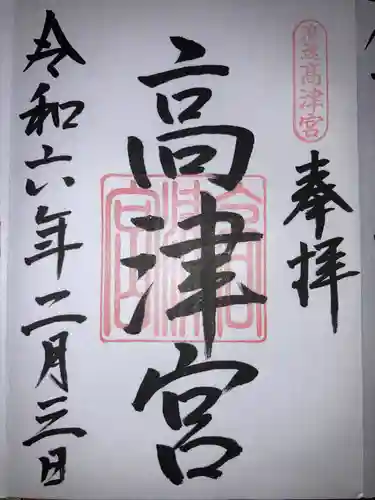 奉拝
高津宮
高津宮
令和六年二月三日